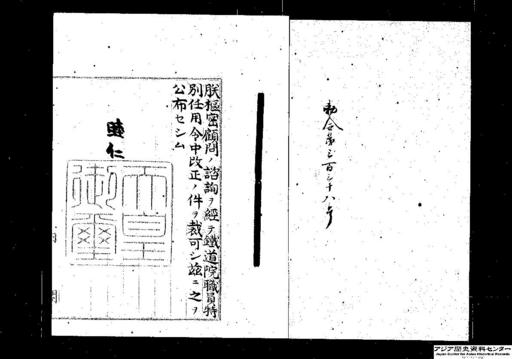 勅令第三百三十八号
朕樞密顧問ノ諮詢ヲ經テ鐵道院職員特
別任用令中改正ノ件ヲ裁可シ茲ニ之ヲ
公布セシム
睦仁
天皇
御璽
アジア歴史資料センター
Japan Center for Asian Historical Records